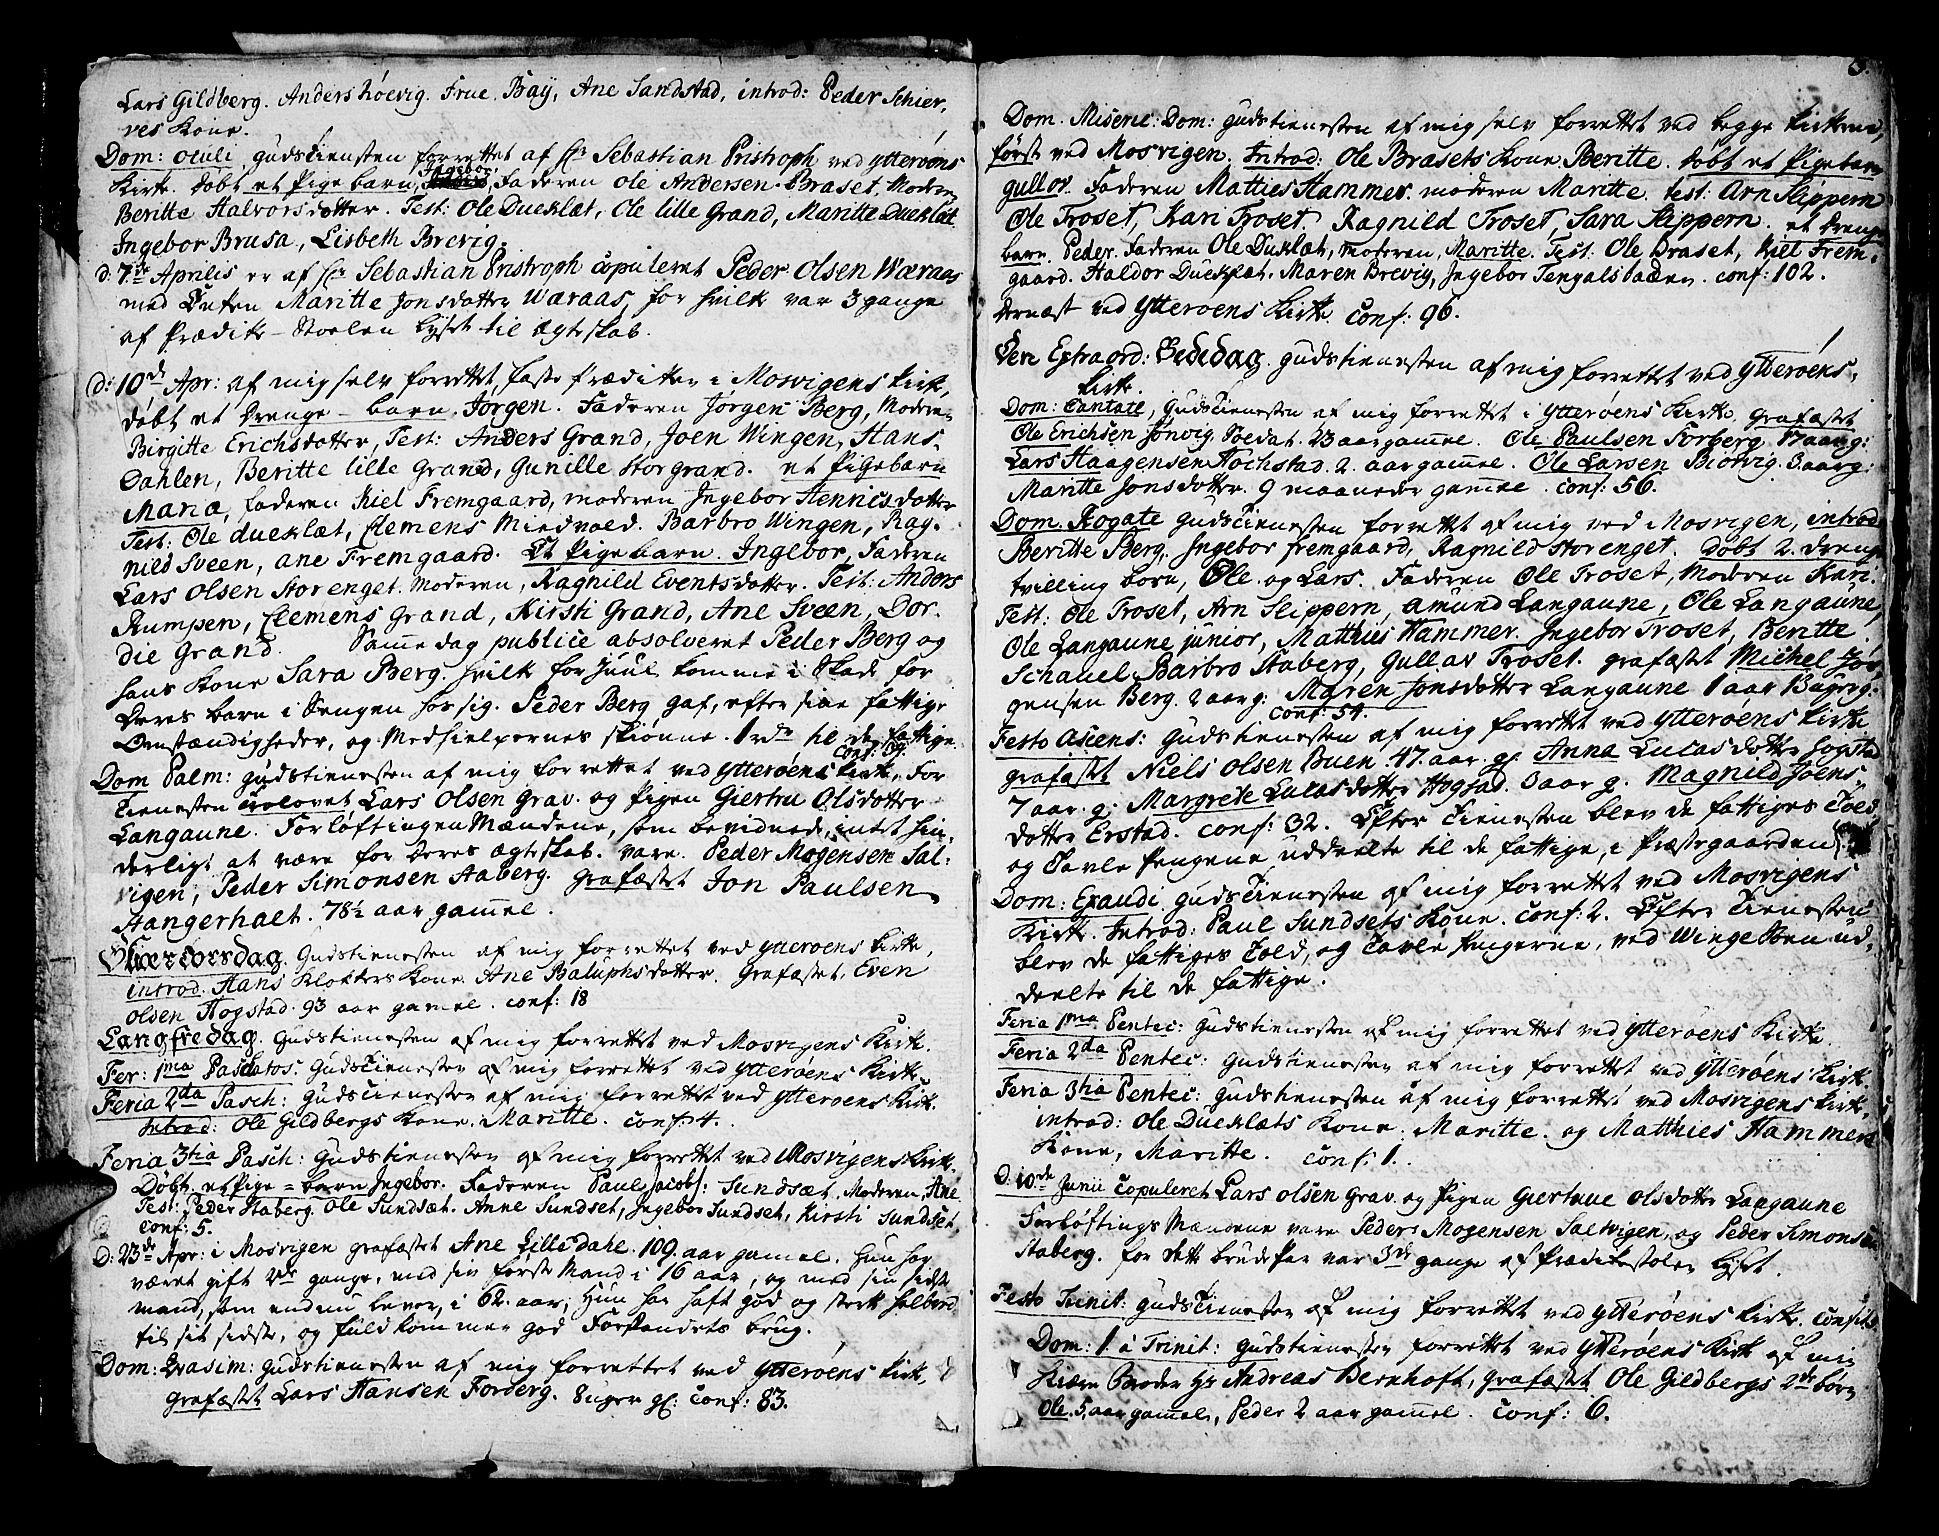 Lars Gildberg. Anders höevig. Frue Bay, Ane Sandstad, introd: Peder Schier,
ves Kone.
Dom: Oculi gudstienesten forrettet af Hr Sebastian Pristroph ved Ytterøens
Kirke. døbt et Pigebarn, Ingebor, Faderen Ole Andersen Braset, Moderen
Beritte Halvorsdotter. Test: Ole Dueklæt, Ole lille Grand, Maritte Dueklæt
Ingebor Brusa, Lisbeth Brevig.
d: 7de Aprilis er af Hr Sebastian Pristroph copuleret Peder Olsen Wæraas
med Enken Maritte Jonsdotter Waraas, for hvilke var 3 gange
af Prædike-Stoelen lyset til ægteskab.
d: 10de Apr: af mig selv forrettet faste Prædiken i Mosvigens Kirke,
døbt et Drenge-barn. Jørgen. Faderen Jørgen Berg, Moderen
Birgitte Erichsdotter, Test: Anders Grand, Joen Wingen, Hans
Dahlen, Beritte lille Grand, Gunille Storgrand. et Pigebarn
Maria, faderen Kiel Fremgaard, moderen Ingebor Hennicsdotter
Test: Ole dueklæt, Clemens Miedvold. Barbro Wingen, Rag-
nild Sveen, ane Fremgaard. Et Pigebarn. Ingebor, Faderen
Lars Olsen Storenget. Moderen, Ragnild Eventsdotter. Test: Anders
Rumpen, Clemens Grand, Kirsti Grand, Ane Sveen, Dor-
die Grand. Samme dag publice absolveret Peder Berg og
hans Kone Sara Berg. hvilke for Juul komme i Skade for
Deres barn i Sengen hos sig. Peder Berg gaf, efter sine fattige
Omstændigheder, og Medhielpernes skiønne. 1 rdr til de fattige.
conf: 139.
Dom Palm: gudstienesten af mig forrettet ved Ytterøens Kirke, For
Tienesten trolovet Lars Olsen Grav. og Pigen Giertru Olsdotter
Langaune. Forløftingen Mændene, som bevidnede, intet hin-
derligt at være for Deres ægteskab. vare. Peder Mogensen Sal-
vigen, Peder Simonsen Aaberg. grafæstet Jon Paulsen
Hangerhalt. 78½ aar gammel.
Skiertorsdag. Gudstienesten af mig forrettet ved Ytterøens Kirke,
introd. Hans Klokkers Kone. Ane Baluphsdotter. Grafæstet. Even
Olsen Hogstad. 93 aar gamel. conf: 18
Langfredag. Gudstienesten af mig forrettet ved Mosvigens Kirke.
Fer: 1ma Paschatos: Gudstienesten af mig forrettet ved Ytterøens Kirke.
Feria 2da Pasch: Gudstienesten af mig forrettet ved Ytterøens Kirke.
Introd: Ole Gildbergs Kone. Maritte. conf: 4.
Feria 3tia Pasch: Gudstienesten af mig forrettet ved Mosvigens Kirke.
Døbt. et Pige=barn Ingebor. Faderen Paul Jacobs: Sundsæt. Moderen, Ane
Test: Peder Staberg. Ole Sundsæt. Anne Sundset, Ingebor Sundset, Kirsti Sundset.
conf: 5.
D: 23de Apr: i Mosvigen grafæstet Ane Lillesdahl. 109. aar gamel. Hun har
været gift 2de gange, med sin første Mand i 16 aar, og med sin sidste
mand, som endnu lever, i 62. aar, Hun har haft god og sterk helbred
til sit sidste, og fuldkommen god Forstandets brug.
Dom: Qvasim: Gudstienesten af mig forrettet ved Ytterøens Kirke,
grafæstet Lars Hansen Forberg. 8 uger gl: conf: 83.
3.
Dom. Miseric: Dom: gudstienesten af mig selv forrettet ved begge Kirkerne,
først ved Mosvigen. Introd: Ole Brasets Kone Beritte. døbt et Pigebarn
gullov. Faderen Matties Hammer. moderen Maritte. test: Arn Skippern
Ole Troset, Kari Troset. Ragnild Troset, Sara Skippern. et Drenge
barn. Peder. Faderen Ole Dueklæt, moderen, Maritte. Test: Ole Braset, Kiel Frem-
gaard. Haldor Dueklæt, Maren Brevig, Ingebor Tengalsbacken. conf: 102.
dernæst ved Ytterøens Kirke. conf: 96.
Den Extraord: Bededag. gudstienesten af mig forrettet ved Ytterøens,
Kirke.
Dom: Cantate, Gudstienesten af mig forrettet i Ytterøens Kirke, grafæstet
Ole Erichsen Jønvig. Soldat. 23 aar gamle. Ole Paulsen Forberg. 17 aar g:
Lars Haagensen Hochstad. 2. aar gammel. Ole Larsen Biørvig. 3 aar g:
Maritte Jonsdotter. 9 maaneder gamle. conf: 56.
Dom. Rogate gudstienesten forrettet af mig ved Mosvigen, introd
Beritte Berg, Ingebor fremgaard, Ragnild Storenget. Døbt 2. Drenge
tvilling børn, Ole og Lars. Faderen Ole Troset, Moderen Kari.
Test: Ole Troset, Arn Skippern, Amund Langaune, Ole Langaune,
Ole Langaune junior, Matthies Hammer. Ingebor Troset, Beritte
Schavel. Barbro Staberg, Gullav Troset. grafæstet Michel Jør-
gensen Berg. 2 aar g: Maren Jonsdotter Langaune 1 aar 8 uger g:
conf: 54.
Festo Ascens: Gudstienesten af mig forrettet ved Ytterøens Kirke
grafæstet Niels Olsen Buen 47. aar. gl Anna Lucasdotter Hogstad
7 aar. g: Margrete Lucasdotter Hogstad. aar g. Magnild Joens-
dotter Erstad. conf: 32. Efter Tienesten blev de fattiges Told
og Tavle Pengene uddeelte til de fattige, i Præstegaarden
Dom: Exaudi gudstienesten af mig forrettet ved Mosvigens
Kirke. Introd: Paul Sundsets Kone. conf: 2. Efter Tienesten
blev de fattiges Told, og Tavle Pengene, ved Winge ud-
deelte til de fattige.
Feria 1ma Pentec: Gudstienesten af mig forrettet ved Ytterøens Kirke.
Feria 2da Pentec: Gudstienesten af mig forrettet ved Ytterøens Kirke.
Feria 3tia Pentec: Gudstienesten af mig forrettet ved Mosvigens Kirke.
introd: Ole Dueklæts Kone. Maritte. og Matthies Hammers
Kone, Maritte. conf: 1.
D. 10de Junii copuleret Lars Olsen Grav. og Pigen Giertrue Olsdotter Langaune
Forløftings Mændene vare Peder Mogensen Salvigen, og Peder Simonsen
Staberg. for dette brude Par var 3de gange af Prædikestolen lyset.
Festo Trinit: gudstienesten af mig forrettet ved Ytterøens Kirke.
Dom: 1 à Trinit: gudstienesten forrettet ved Ytterøens Kirke af min
Kiære Broder Hr Andreas Bernhoft, grafæstet Ole Gildbergs 2de børn
Ole. 5. aar gammel, Peder 2 aar gammel. conf: 6.